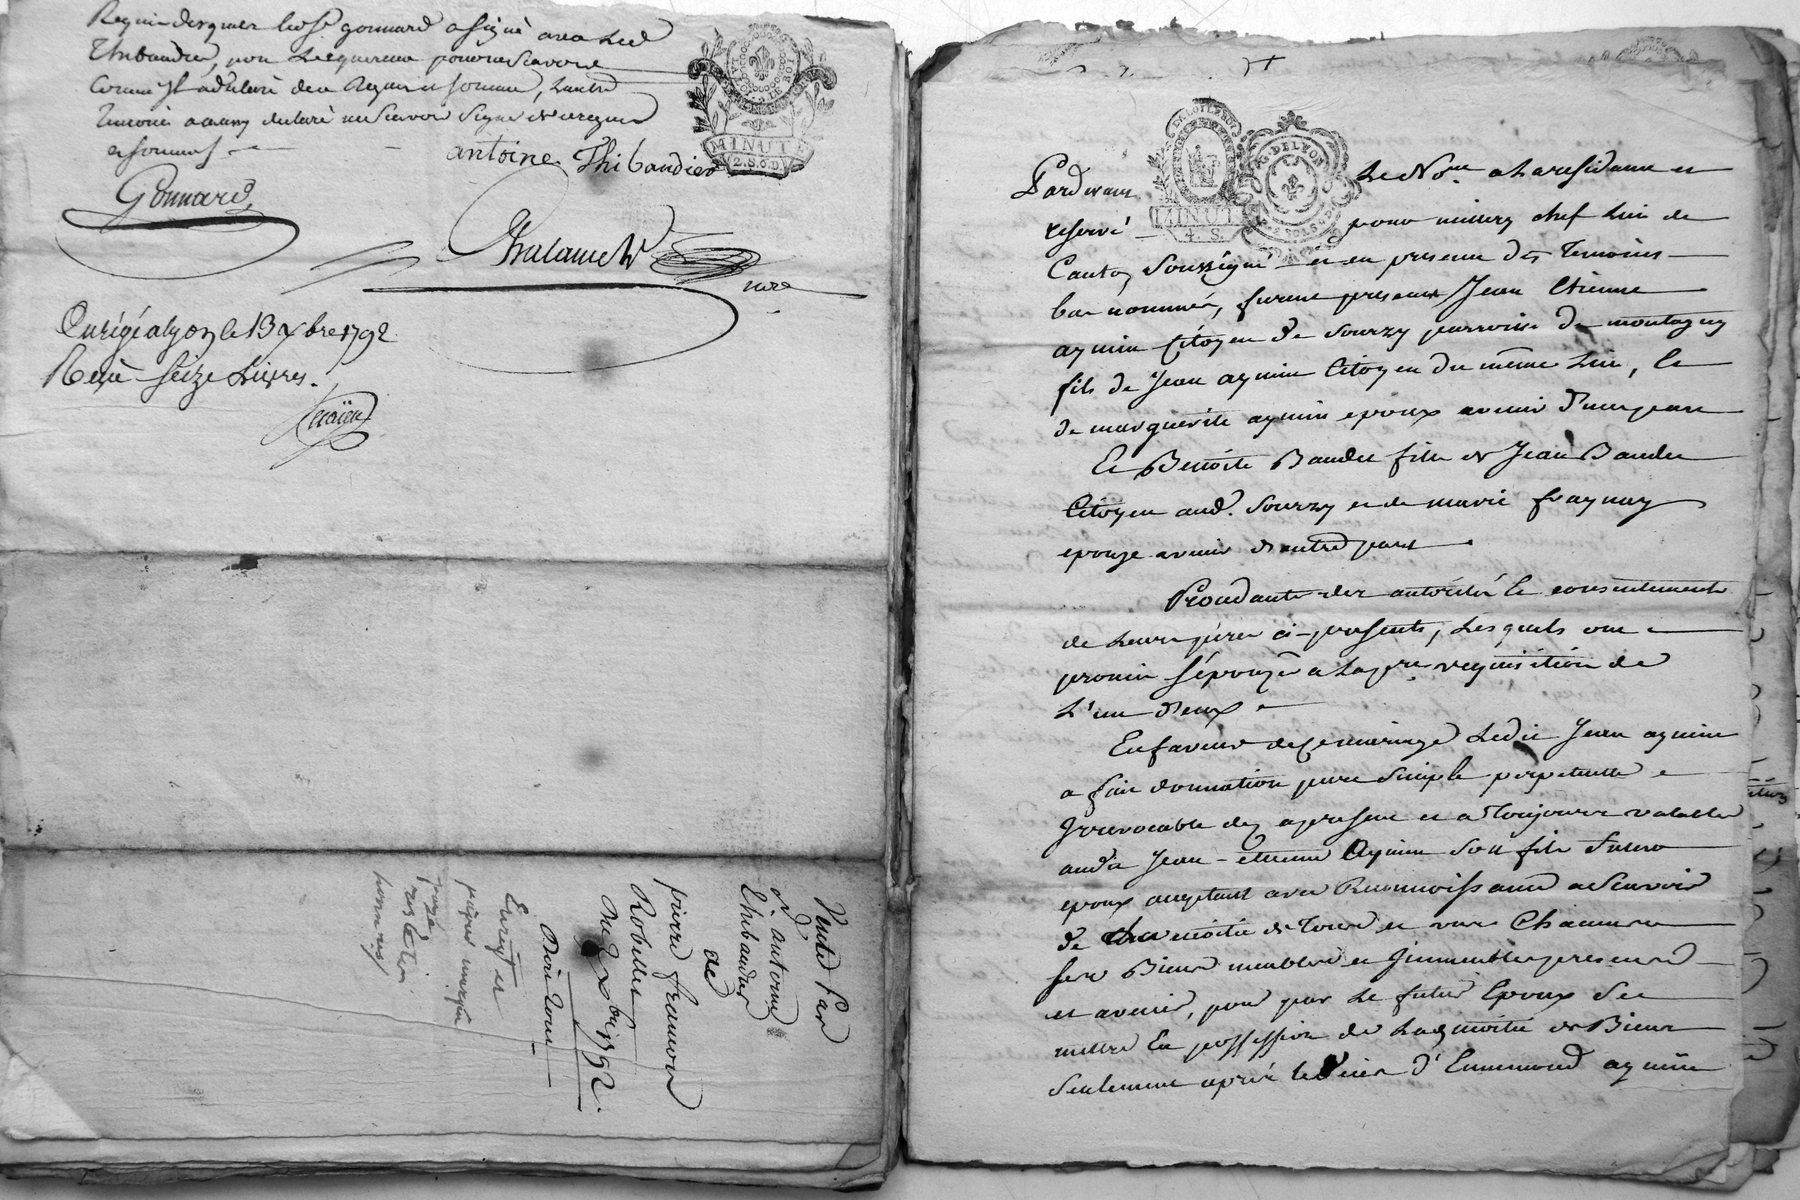 Requis desquels led. S. gonnard a signé avec led.
Thibaudier, non le requerant pour ne Scavoir
comme il a déclaré de ce Requis et sommé, l'autre
témoin a aussy declaré ne Scavoir Signer de ce requis
et sommés
antoine Thibaudier
Gonnard
Chalamel
nore
Enrégé a lyon le 13 Xbre 1792
Reçu Seize Livres.
LA LOI LE ROI
MINUTE
2.S.6D
Vente par
antoine
Thibaudier
de
pierre françois
Robellet
du X bre 1792.
Enregt et
LA LOI LE ROI
MINUTE
4. S.
G. DE LYON
2 SOLS 6 D
Pardevant le No.re a la residence et
reservé pour millery chef lieu de
Canton Soussigné et en presence des temoins
bas nommés, furent presents Jean Etienne
aymin Citoyen de Sourzy parroisse de montagny
fils de Jean aymin Citoyen du même lieu, et
de marguerite aymin epoux avenir d'une part
Et Benoite Baudu fille de Jean Baudu
Citoyen aud. Sourzy et de marie fraynay
epouze avenir d'autre part
Procedants des autorité et consentement
de leurs péres ci-presents, lesquels ont
promis s'épouzer a la p.re requisition de
L'un d'eux
En faveur de ce mariage Ledit Jean aymin
a fait donnation pure Simple perpetuelle et
Irrevocable dez apresent et a Toujours valable
audit Jean-etienne Aymin Son fils futur
epoux acceptant avec Reconnoissance a Scavoir
de la moitié de Tous et uns Chacuns
ses Biens meubles et Immeubles presents
et avenir, pour par le futur Epoux Se
mettre En possession de la moitié des Biens
Seulement après le deces d'Ennemond aymin